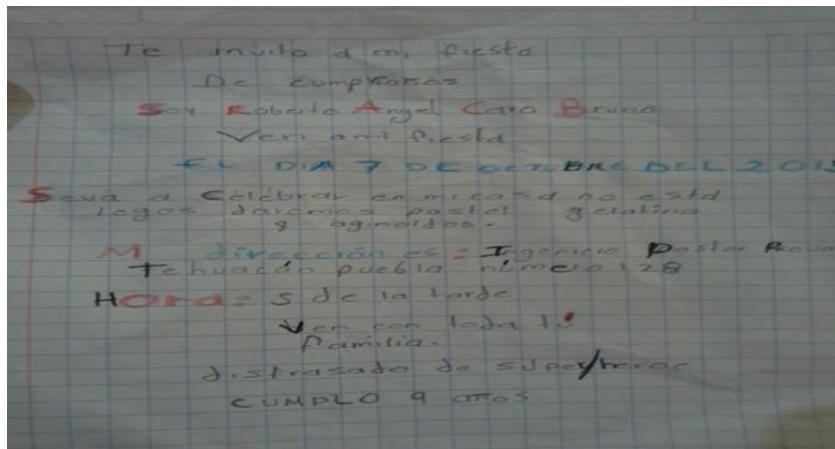 Te invito a mi fiesta
De cumpleaños
Soy Roberto Angel Caro Bruno
Ven a mi fiesta
EL DIA 7 DE OCTUBRE DEL
Se va a celebrar en mi casa no esta
legos daremos pastel gelatina
y aginaldos.
Mi dirección es = Ingeniero Pastor
Tehuacán puebla número 128
HOra= 5 de la tarde
Ven con toda tu
familia.
disfrasado de superheroe
CUMPLO 9 años